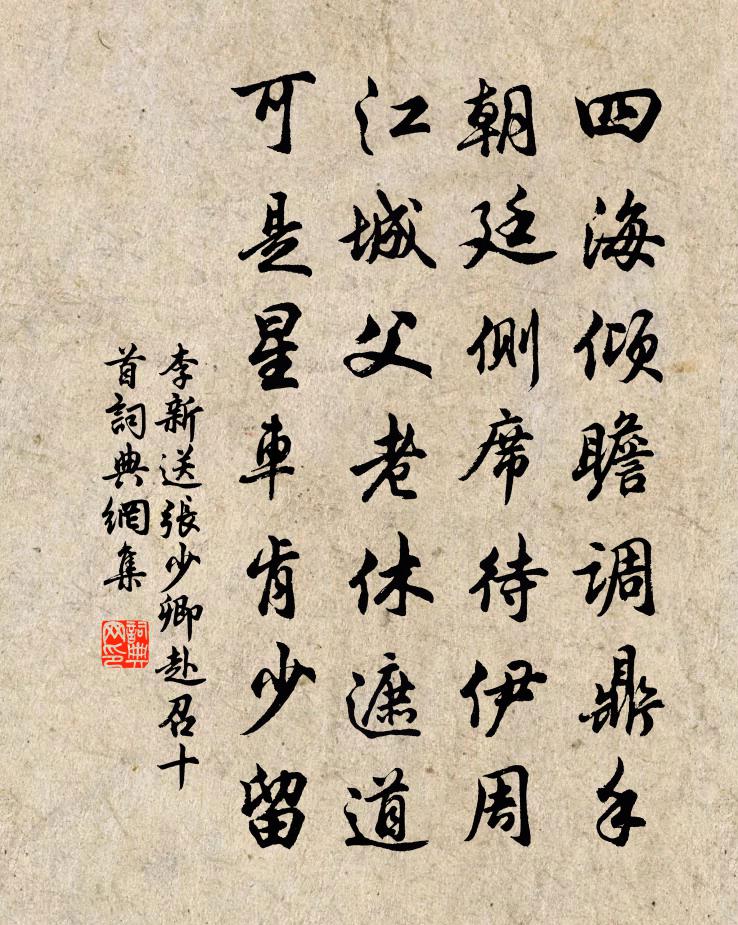 四海倾瞻调鼎手
朝廷侧席待伊周
江城父老休遮道
可是星車肯少留
李新送張少卿赴召十
首詞典網集
詞典
网印